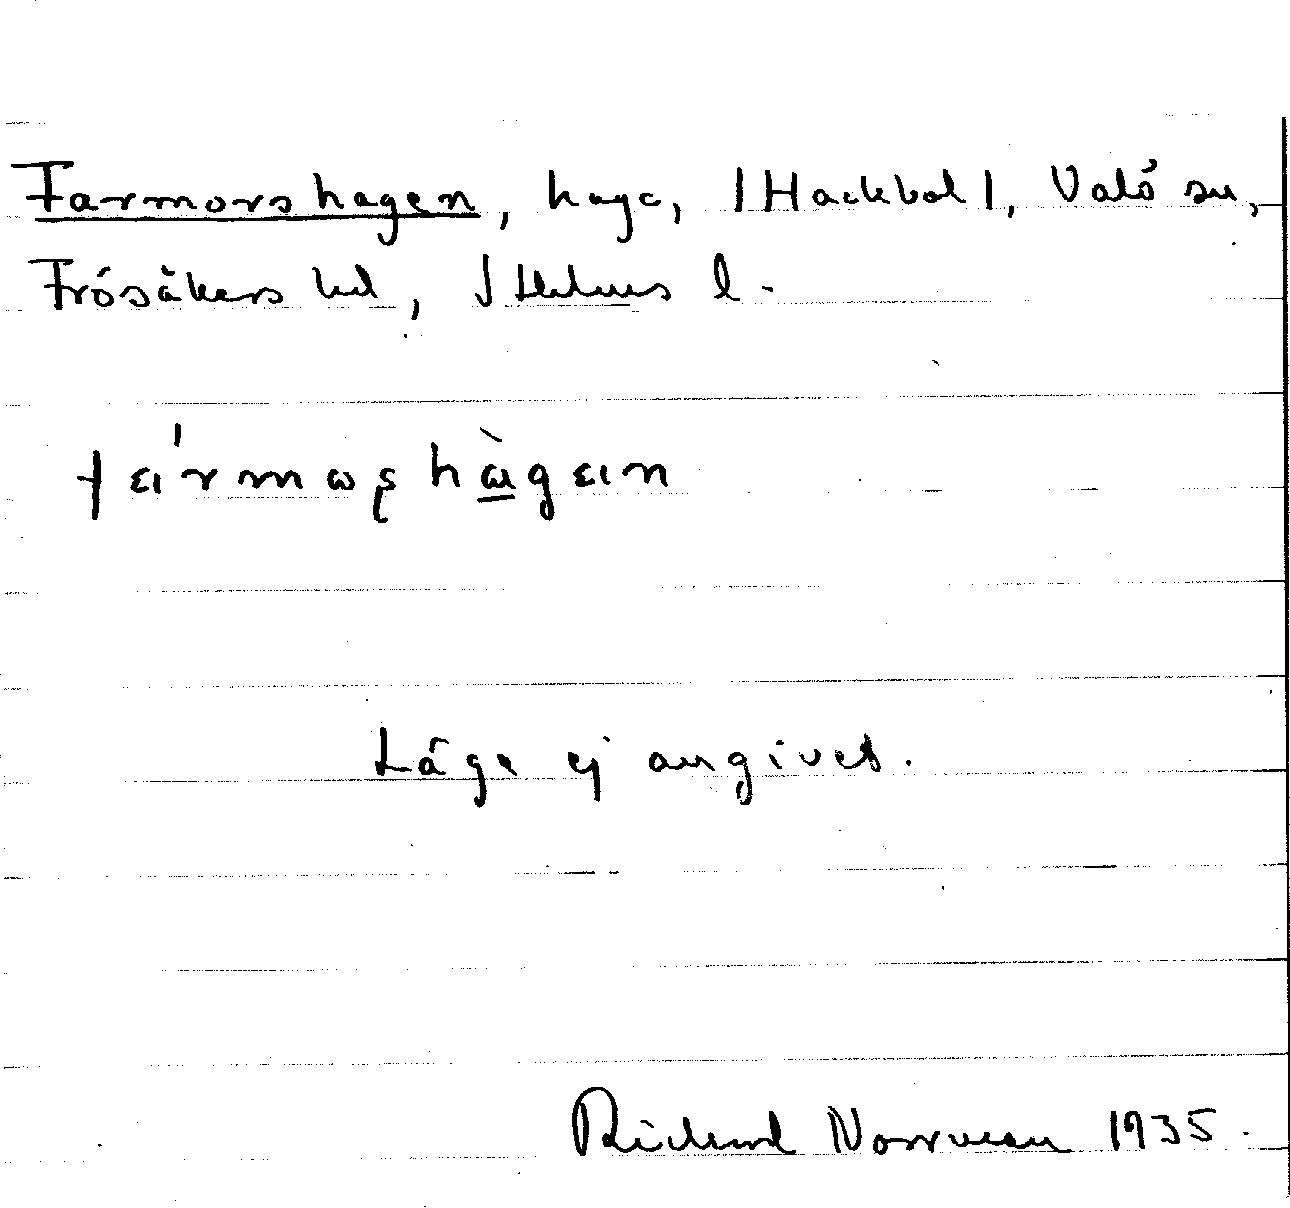 Farmorshagen, hage, /Hackbol/, Valö sn,
Frösåkers hd, Sthlms l.
Läge ej angivet.
Richard Norrman 1935.